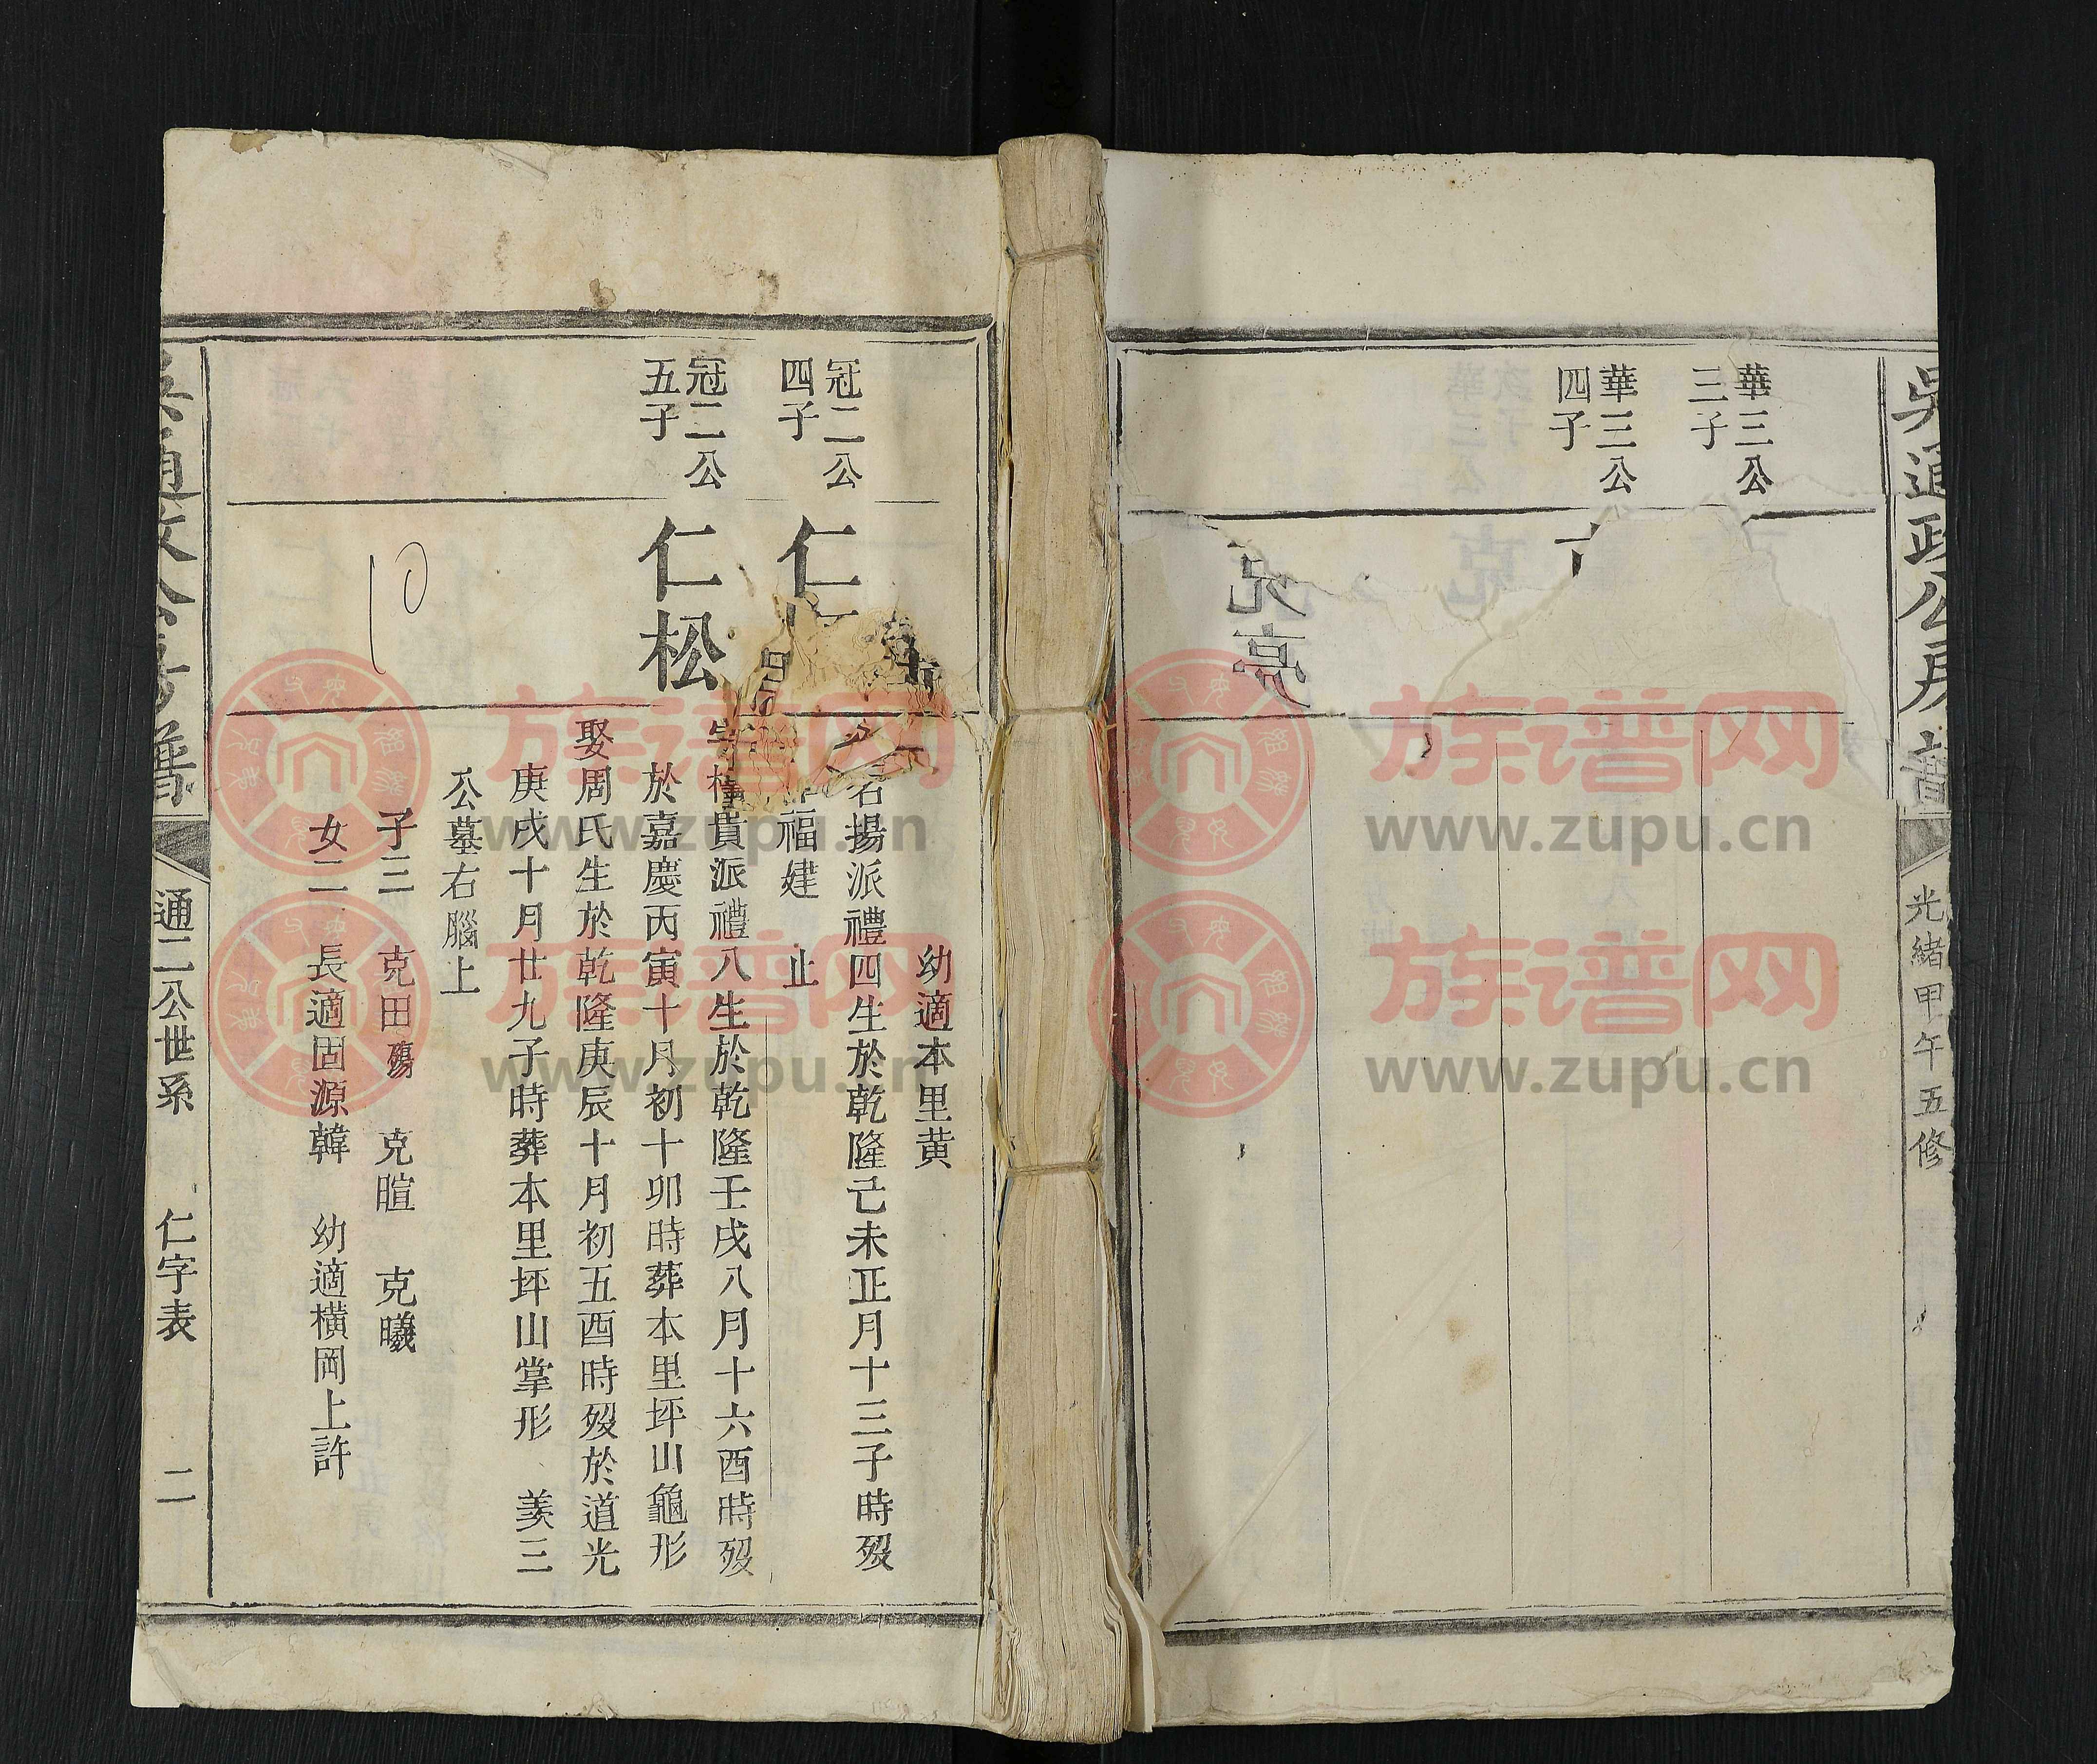 吳通政公房譜
光緒甲午五修
華三公
三子
華三公
四子
冠二公
四子
冠二公
五子
仁
仁松
幼適本里黄
名揚派禮四生於乾隆己未正月十三子時歿
福建 止
字權貴派禮八生於乾隆壬戌八月十六酉時歿
於嘉慶丙寅十月初十卯時葬本里坪山龜形
娶周氏生於乾隆庚辰十月初五酉時歿於道光
庚戌十月廿九子時葬本里坪山掌形 羨三
公墓右腦上
子三 克田殤 克暄 克曦
女二 長適固源韓 幼適橫岡上許
10
通二公世系 仁字表 二
族谱网
www.zupu.cn
族谱网
www.zupu.cn
族谱网
www.zupu.cn
族谱网
www.zupu.cn